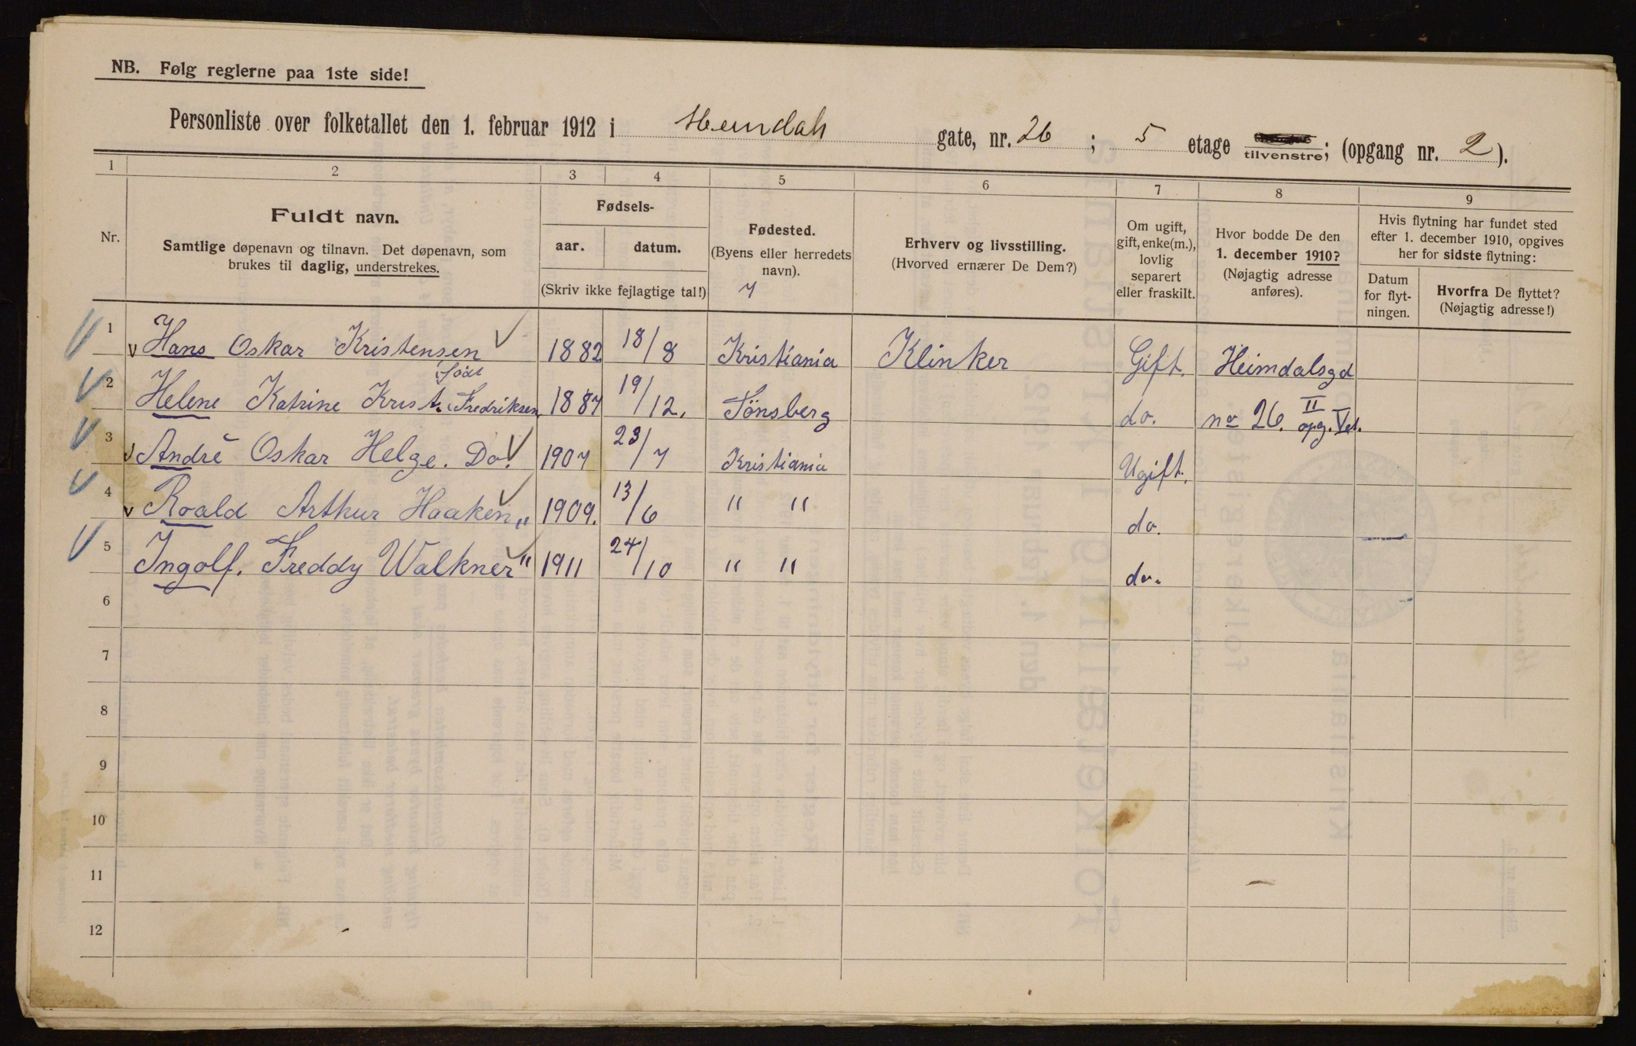 NB. Følg reglerne paa 1ste side!
Personliste over folketallet den 1. februar 1912 i Heimdals gate, nr. 26 ; 5 etage tilvenstre; (opgang nr. 2 ).
1 2 3 4 5 6 7 8 9
Nr.
Fuldt navn.
Samtlige døpenavn og tilnavn. Det døpenavn, som
brukes til daglig, understrekes.
Fødsels-
aar. datum.
(Skriv ikke fejlagtige tal!)
Fødested.
(Byens eller herredets
navn).
7
Erhverv og livsstilling.
(Hvorved ernærer De Dem?)
Om ugift,
gift, enke(m.),
lovlig
separert
eller fraskilt.
Hvor bodde De den
1. december 1910?
(Nøjagtig adresse
anføres).
Hvis flytning har fundet sted
efter 1. december 1910, opgives
her for sidste flytning:
Datum
for flyt-
ningen.
Hvorfra De flyttet?
(Nøjagtig adresse!)
1 Hans Oskar Kristensen 1882 18/8 Kristiania Klinker Gift. Heimdalsgd
født
2 Helene Katrine Krist. Fredriksen 1887 19/12. Tønsberg do. no 26. II opg. V et.
3 André Oskar Helge. Do. 1907 23/7 Kristiania Ugift.
4 Roald Arthur Haaken " 1909. 13/6 " " do.
5 Ingolf. Freddy Walkner " 1911 24/10 " " do.
6
7
8
9
10
11
12